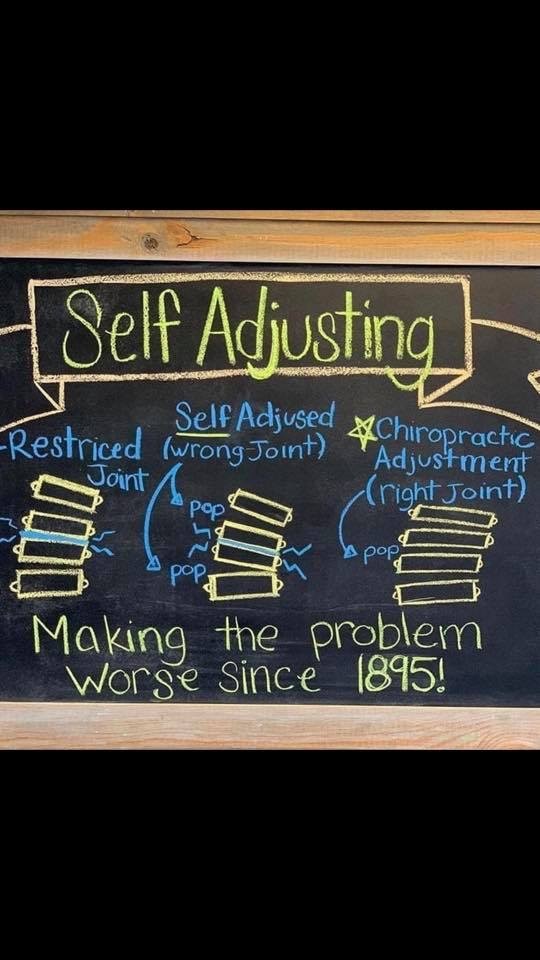 Self Adjusting
Restriced
Joint
Self Adjused
(wrong Joint)
Chiropractic
Adjustment
(right Joint)
pop
pop
pop
Making the problem
Worse Since 1895!